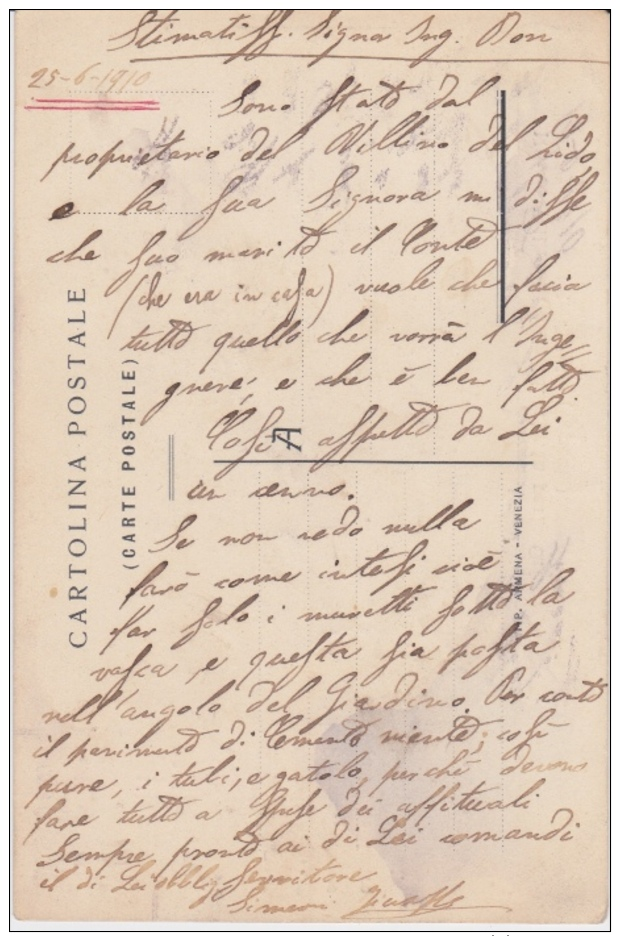 Stimatiss. Signor Ing. Don
25-6-1910
Sono stato dal
proprietario del Villino del Lido,
e la sua Signora mi disse
che suo marito il Conte
(che era in casa) vuole che facia
tutto quello che vorrà l'Inge
gnere, e che è ben fatto
Così aspetto da Lei
un cenno.
Se non vedo nulla
farò come intesi cioè
far solo i muretti sotto la
vasca, e questa sia posta
nell'angolo del Giardino. Per conto
il pavimento di Cemento niente, così
pure, i tubi, e gatolo, perchè devono
fare tutto a spese dei affituali
Sempre pronto ai di Lei comandi
il di Lei obblig Servitore
Simeon
CARTOLINA POSTALE
(CARTE POSTALE)
A
ARMENA - VENEZIA